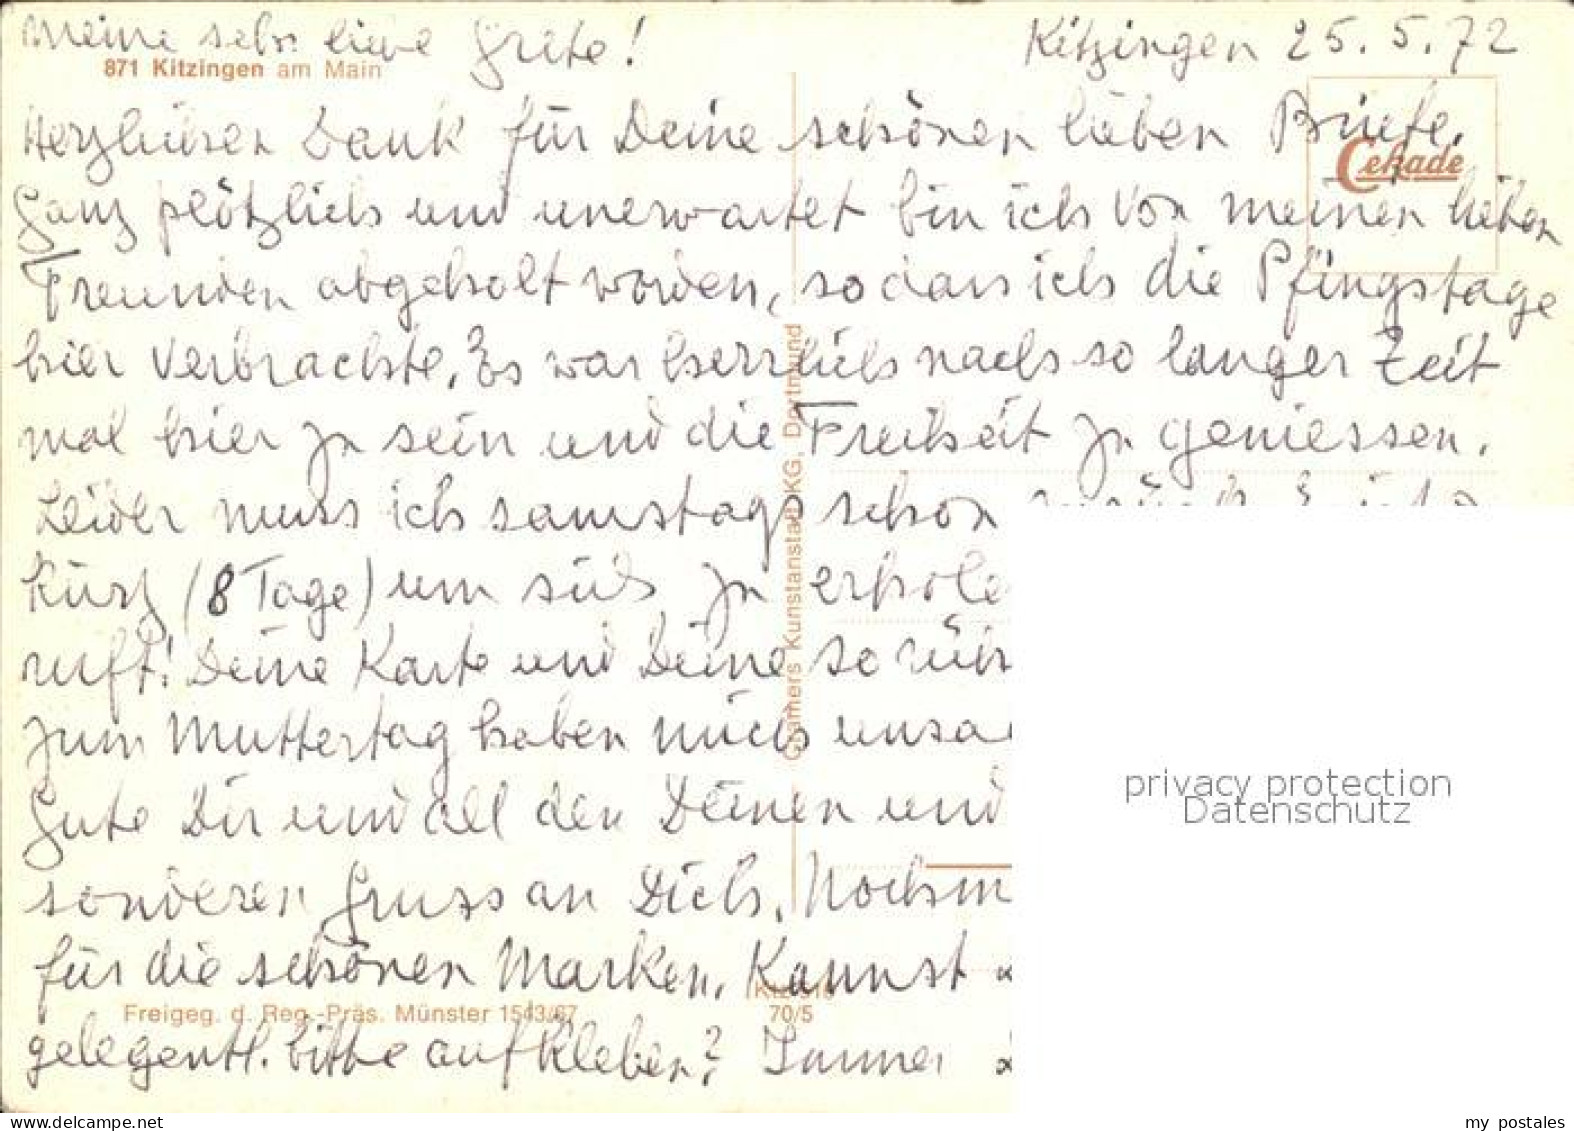 Meine sehr liebe Grete!
Kitzingen 25.5.72
871 Kitzingen am Main
Herzlichen Dank für Deine schönen lieben Briefe.
Cekade
Ganz plötzlich und unerwartet bin ich von meinen lieben
Freunden abgeholt worden, so dass ich die Pfingstage
hier verbrachte. Es war herrlich nach so langer Zeit
mal hier zu sein und die Freiheit zu geniessen.
Leider muss ich samstags schon
kurz (8 Tage) um sich zu erhole
ruft! Deine Karte und Deine so rüh
zum Muttertag haben mich unsa
Gute Dir und all den Deinen und
sonderen Gruss an Dich. Nochm
für die schönen Marken. Kannst
Freigeg. d. Reg.-Präs. Münster 1543/67
70/5
gelegentl. bitte aufkleben? Immer
Cramers Kunstanstalt KG, Dortmund
privacy protection
Datenschutz
www.delcampe.net
my_postales